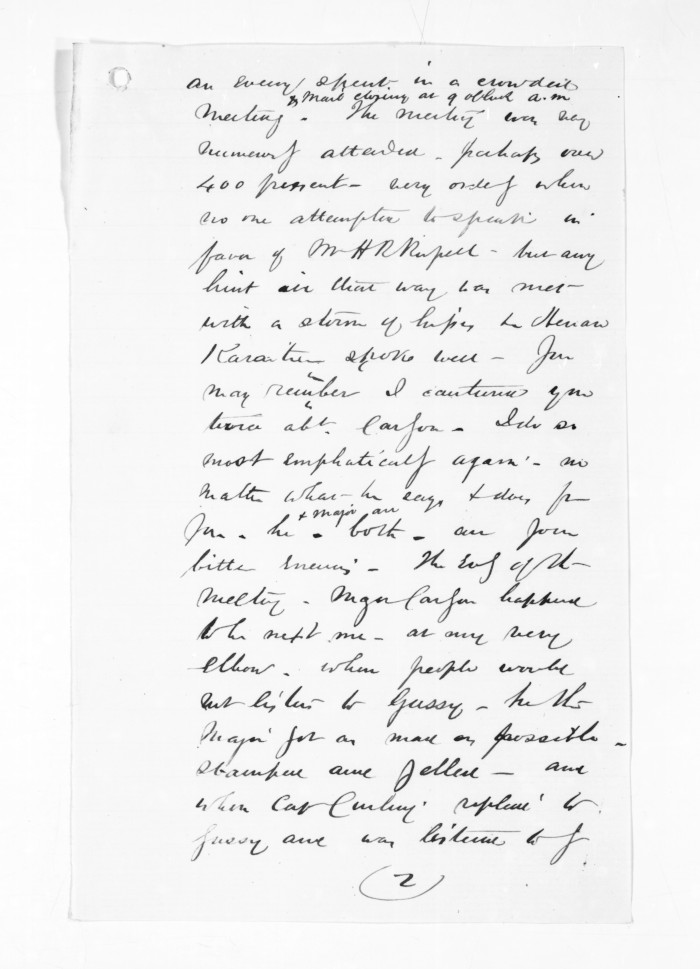 an eveng spent in a crowded
& mail closing at 9 oclock a.m
Meeting - The meeting was very
numerously attended - perhaps over
400 present - very orderly when
no one attempted to speak in
favor of Mr H R Russell - but any
hint in that way was met
with a storm of hisses
Karaitiana spoke well - You
may remember I cautioned you
twice abt. Carlyon - I do so
most emphatically again - no
matter what he says & does for
& Major are
you - he - both - are your
bitter enemies - The Evg of the
meeting - Major Carlyon happened
to be next me - at my very
elbow - when people would
not listen to Gussy - he the
Major got as mad as possible -
stamped and yelled - and
when Cap Curling replied to
Gussy and was listened to
(2)